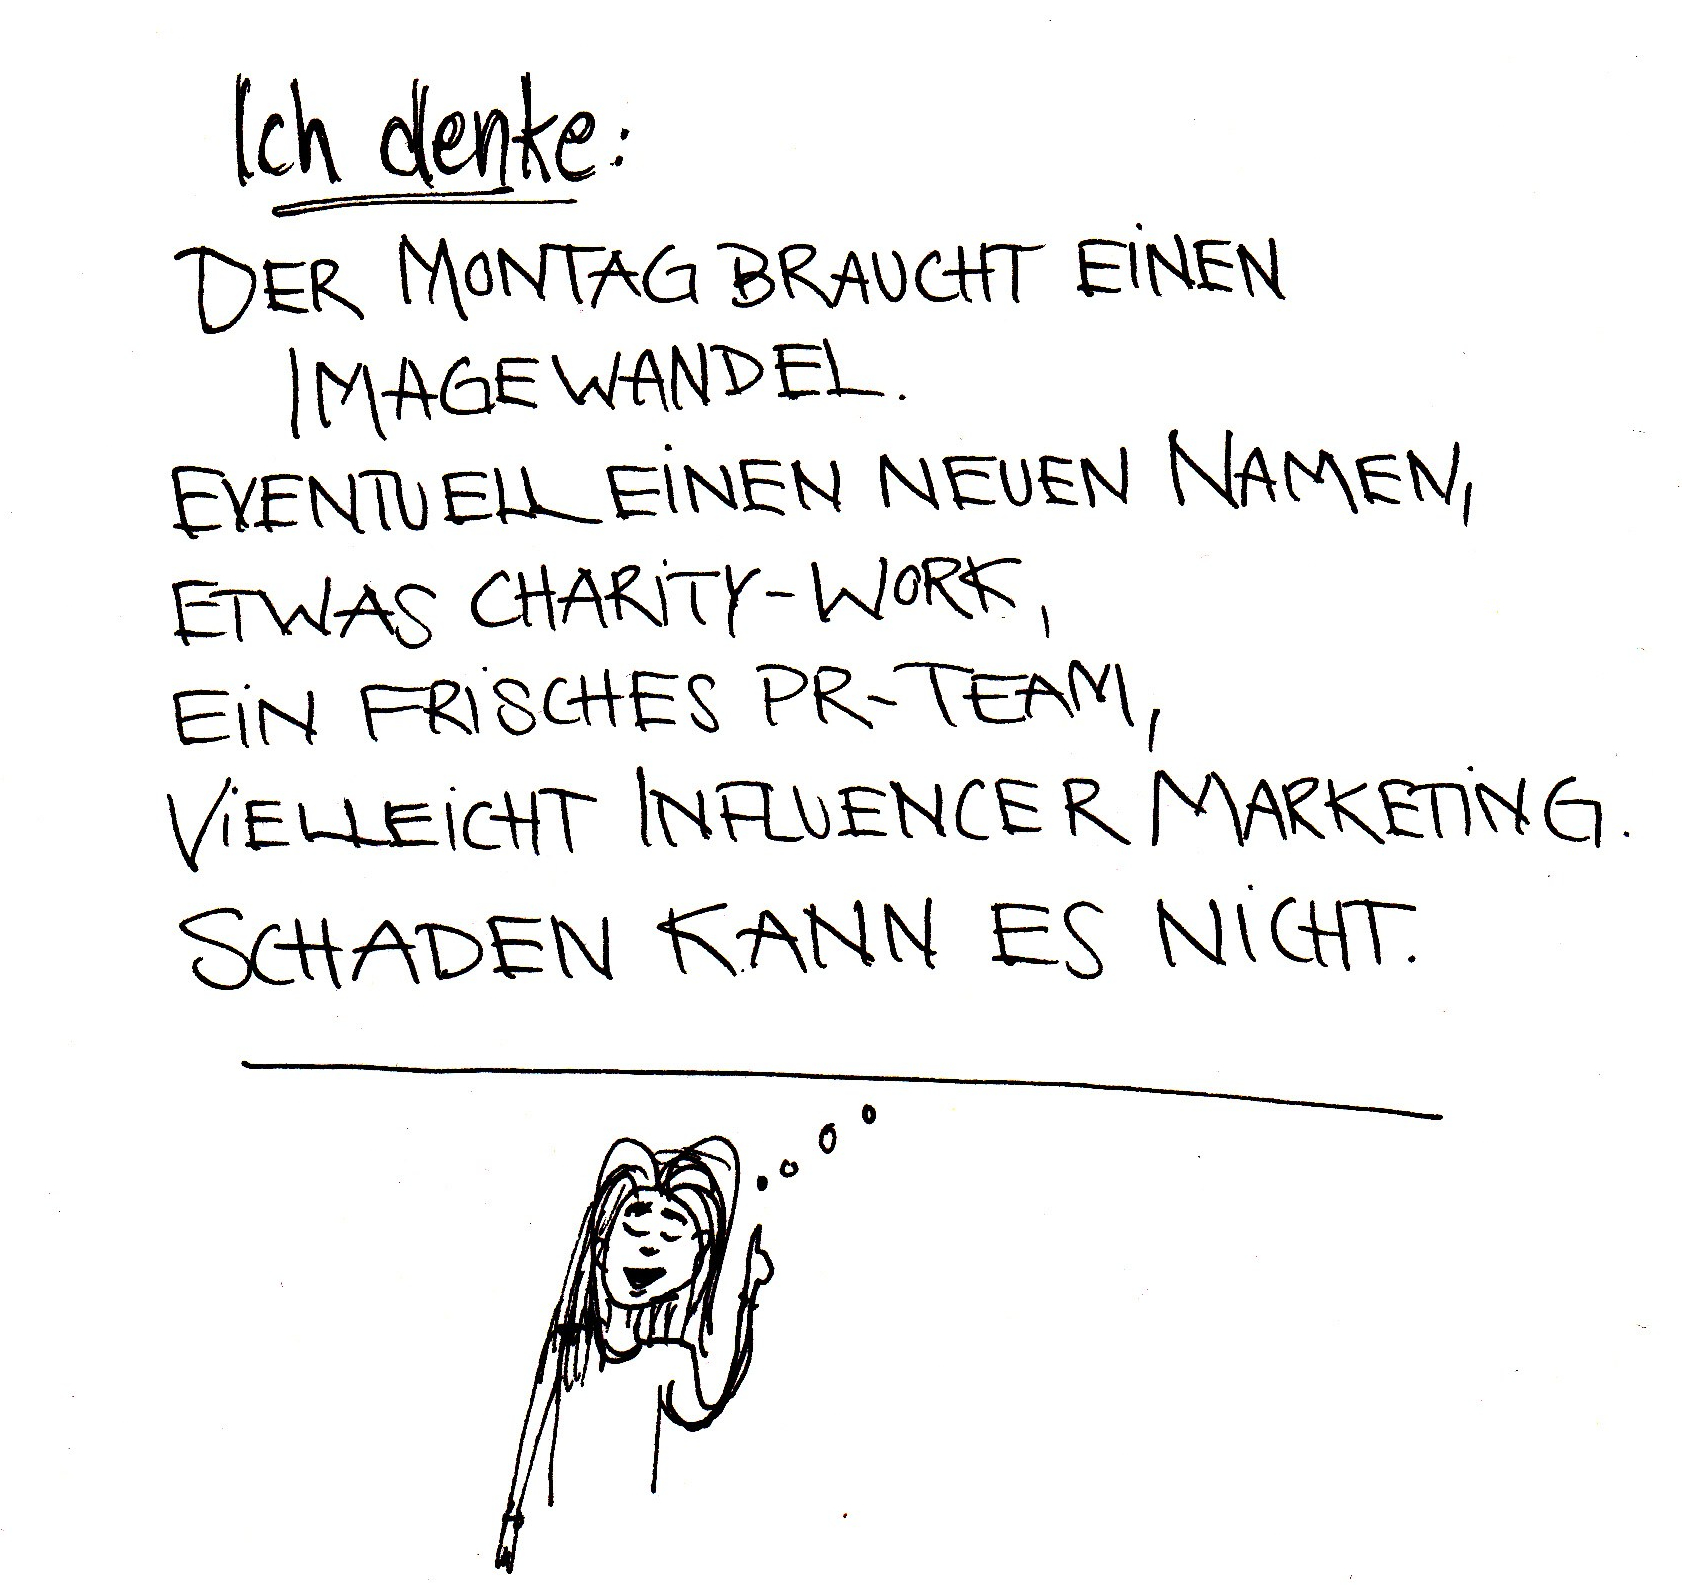 Ich denke:
DER MONTAG BRAUCHT EINEN
IMAGEWANDEL.
EVENTUELL EINEN NEUEN NAMEN,
ETWAS CHARITY-WORK,
EIN FRISCHES PR-TEAM,
VIELLEICHT INFLUENCER MARKETING.
SCHADEN KANN ES NICHT.